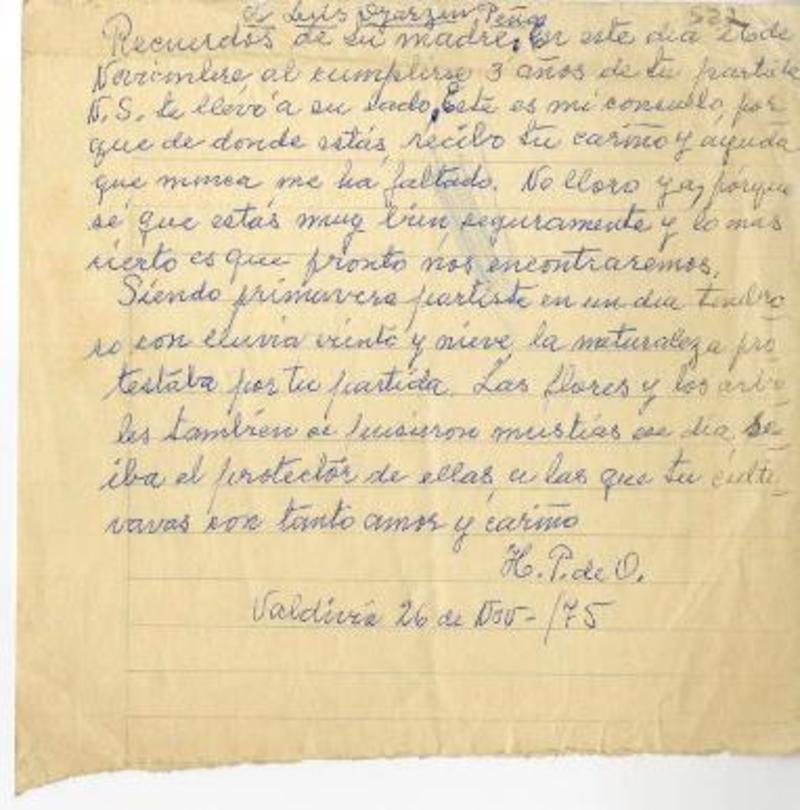 A Luis Oyarzun Peña 522
Recuerdos de su madre, En este día 26 de
Noviembre al cumplirse 3 años de tu partida
N.S. te llevó a su lado, Este es mi consuelo, por
que de donde estás, recibo tu cariño y ayuda
que nunca me ha faltado. No lloro ya, porque
sé que estás muy bien seguramente y lo mas
cierto es que pronto nos encontraremos.
Siendo primavera partiste en un día tenebro
so con lluvia viento y nieve, la naturaleza pro
testaba por tu partida. Las flores y los arbo
les también se pusieron mustias ese día, se
iba el protector de ellas, a las que tu culti
vavas con tanto amor y cariño
H. P. de O.
Valdivia 26 de Nov-/75